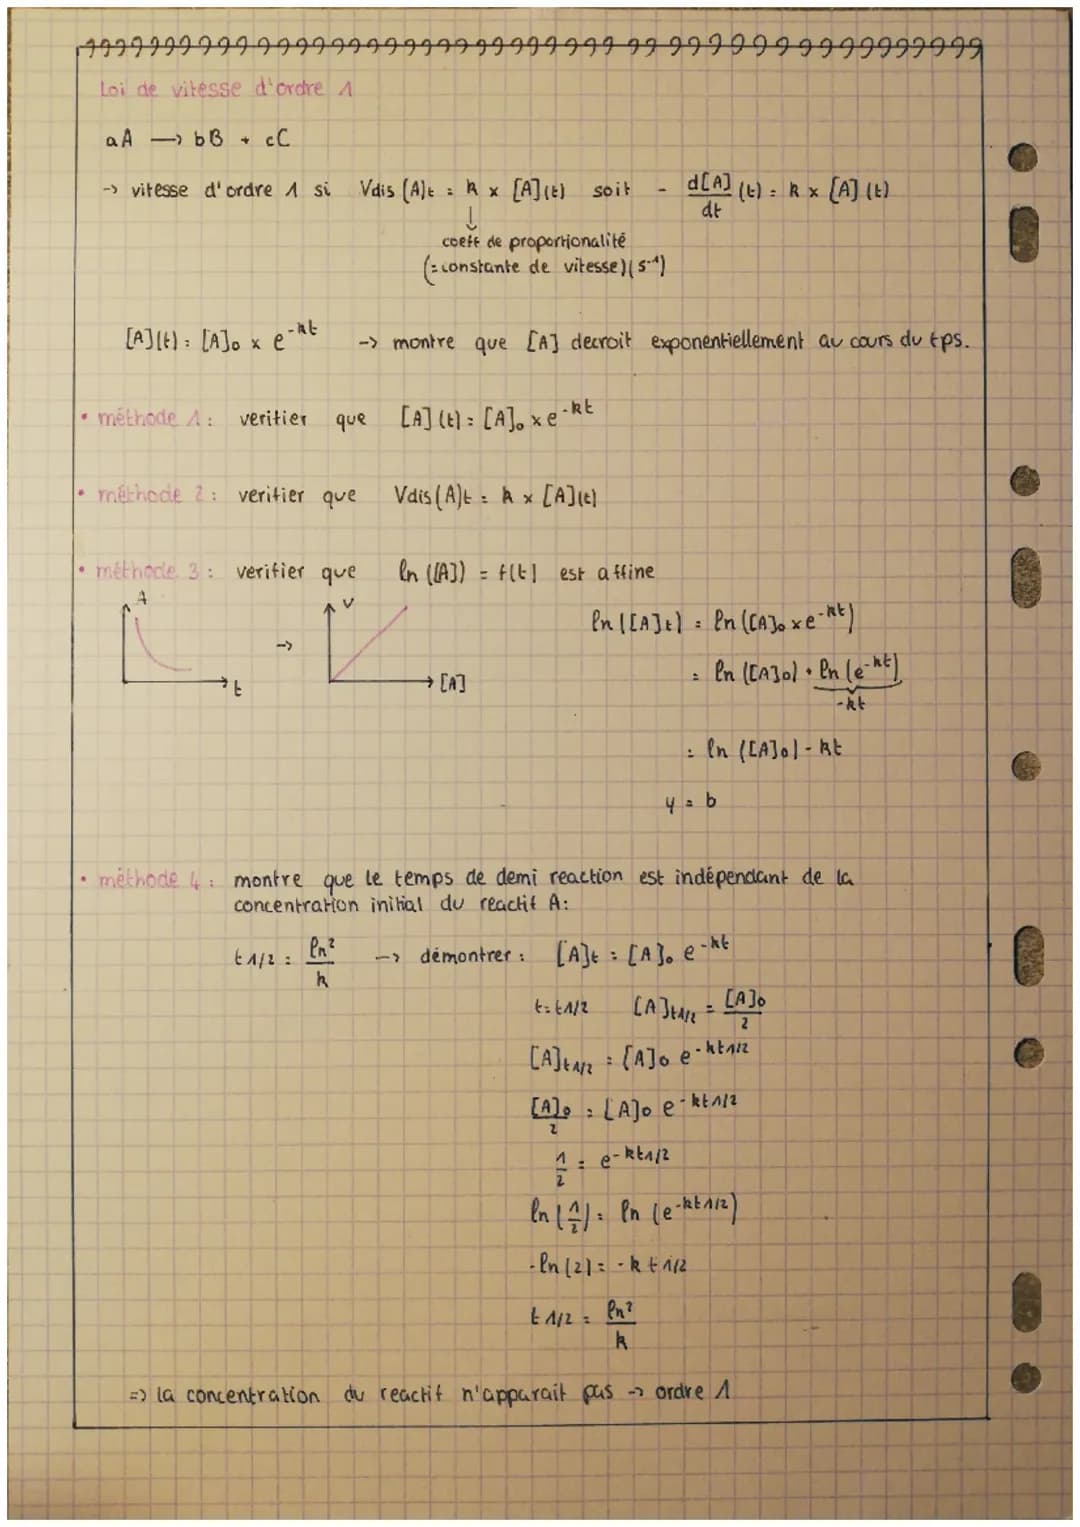 Loi de vitesse d'ordre 1
aA → bB + cC
-> vitesse d'ordre 1 si Vdis (A)t = k x [A](t) soit - d[A]/dt (t) = k x [A](t)
↓
coeff de proportionalité
(=constante de vitesse)(s⁻¹)
[A](t) = [A]₀ x e^-kt -> montre que [A] decroit exponentiellement au cours du tps.
• méthode 1 : verifier que [A](t) = [A]₀ x e^-kt
• méthode 2 : verifier que Vdis(A)t = k x [A](t)
• méthode 3 : verifier que ln([A]) = f(t) est affine
A
t
->
V
[A]
ln([A]t) = ln([A]₀ x e^-kt)
= ln([A]0) + ln(e^-kt)
-kt
= ln([A]0) - kt
y = b
• méthode 4 : montre que le temps de demi reaction est indépendant de la
concentration initial du reactif A:
t1/2 = ln²/k -> démontrer : [A]t = [A]₀ e^-kt
t=t1/2 [A]t1/2 = [A]0/2
[A]t1/2 = [A]0 e^-kt1/2
[A]0/2 = [A]0 e^-kt1/2
1/2 = e^-kt1/2
ln(1/2) = ln(e^-kt1/2)
-ln(2) = -k t1/2
t1/2 = ln²/k
=> la concentration du reactif n'apparait pas -> ordre 1